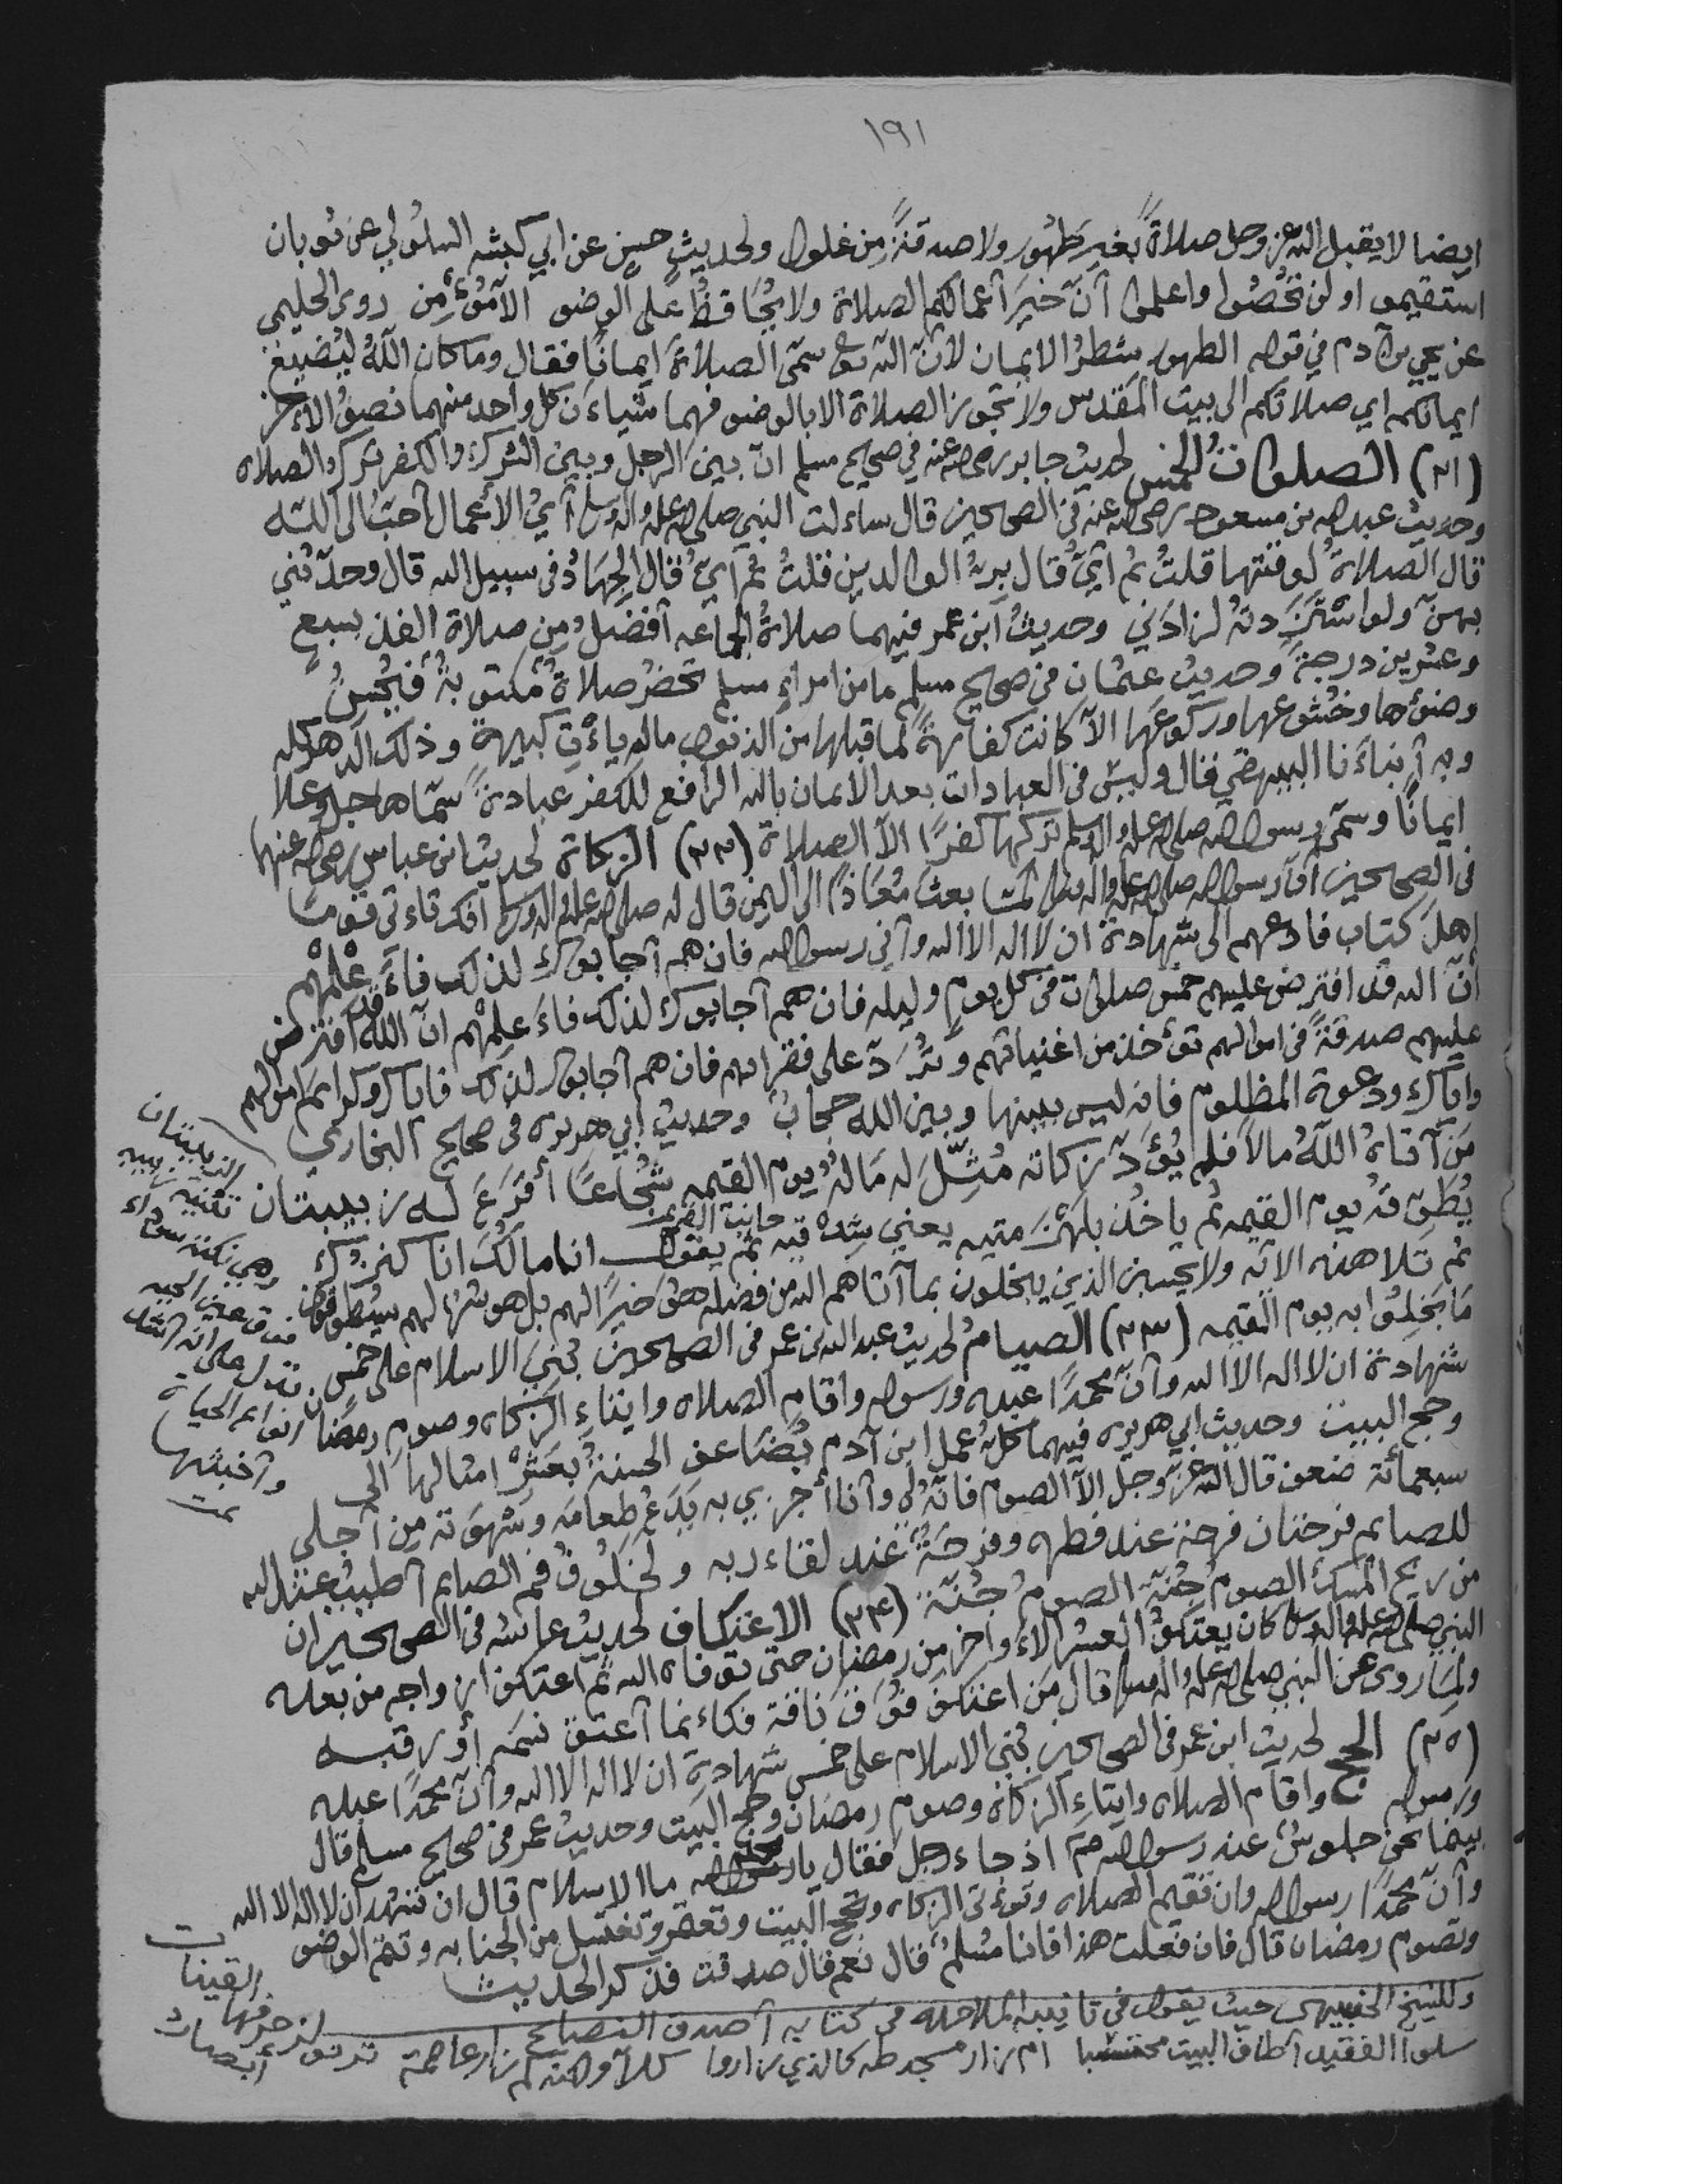 ١٩١
ايضا لا يقبل الله عز وجل صلاةً بغير طَهُور ولا صدقةً من غلول ولحديث حسن عن ابي كبشه السلولي عن ثوبان
استقيموا ولن تُحْصُوا واعلموا أنّ خيرَ أعمالكم الصلاة ولا يُحَافظُ على الوضوء الا مؤمن روى الحليمي
عن يحيى بن آدم في قوله الطهور شطرُ الايمان لانّ الله تع سمّى الصلاةَ ايمانًا فقال وما كان اللّهُ ليُضيعَ
ايمانكم اي صلاتكم الى بيت المَقْدس ولا تجوز الصلاة الا بالوضوء فهما شيآن كل واحد منهما نصفُ الآخر
(٢١) الصلواتُ الخمس لحديث جابر رضي الله عنه في صحيح مسلم انّ بين الرجل وبين الشرك والكفر تركَ الصلاه
وحديث عبد الله بن مسعود رضي الله عنه في الصحيحين قال ساءلت النبي صلى الله عليه واله وسلم أيُّ الأعمال أحبّ الى اللّه
قال الصلاةُ لوقتها قلتُ ثم أيّ قال برُّ الوالدين قلتُ ثم أيّ قال الجهادُ فى سبيل الله قال وحدّثني
بهنّ ولو استَزَدتهُ لزادَني وحديثُ ابن عمر فيهما صلاةُ الجماعه أفضلُ من صلاة الفذ بسبعٍ
وعشرين درجةً وحديث عثمان في صحيح مسلم ما من امرإٍ مسلم تحضرُ صلاةٌ مكتوبةٌ فيُحْسنُ
وضؤها وخُشوعها وركوعَها الاّ كانت كفارةً لما قبلها من الذنوب مالم ياءْتِ كبيرةً وذلك الدهر كله
وبه أنباءَنا البيهقي فقال وليس فى العبادات بعد الايمان بالله الرافع للكفر عبادةٌ سمّاها جل وعلا
ايمانًا وسمّى رسول الله صلى الله عليه واله وسلم تركها كفرًا الاّ الصلاة (٢٢) الزكاة لحديث ابن عباس رضي الله عنهما
فى الصحيحين أنّ رسول الله صلى الله عليه واله وسلم لمّا بعثَ مُعَاذً الى اليمن قال له صلى الله عليه واله وسلم انك تاءتى قومًا
اهلَ كتاب فادعهم الى شهادة ان لا اله الا الله وأني رسول الله فان هم أجابوك لذلك فاءَعْلِمْهم
أنّ الله قد افترض عليهم خمس صلوات فى كل يومٍ وليله فان هم أجابوك لذلك فاءَعلِمْهم انّ اللّه قد افترض
عليهم صدقةً فى اموالهم تؤخذ من اغنيائهم وتُرَدّ على فقرائهم فان هم أجابوك لذلك فاياك وكرائمَ اموالهم
واياك ودعوة المظلوم فانه ليس بينها وبين الله حجابٌ وحديث أبي هريره فى صحيح البخاري
مَن آتاهُ اللّهُ مالاً فلم يُؤَدّ زكاته مُثِّلَ له مَالهُ يوم القيمه شُجاعًا أقرَعَ له زبيبتان
يُطَوّقهُ يوم القيمه ثم ياخذُ بلهْزمتيه يعني شدْقيه ثم يقول انا مالُكَ انا كنزُك
جانبَ الفم
ثم تلا هذه الآيه ولا يحسبن الذين يبخلون بما آتاهم الله من فضله هو خيرًا لهم بل هو شرّ لهم سيُطوّقون
مَا بَخِلُوا به يوم القيمه (٢٣) الصيامُ لحديث عبد الله بن عمر فى الصحيحين بُنيَ الاسلام على خمسٍ
شهادة ان لا اله الا الله وأنّ محمدًا عبده ورسوله واقام الصلاه وايتاءِ الزكاه وصوم رمضان
وحج البيت وحديث ابي هريره فيهما كل عمل ابن آدم يُضَاعف الحسنةُ بعَشْر امثالها الى
سبعمائة ضعف قال الله عزّ وجل الاّ الصوم فانّه لي وأنا أجزي به يَدَعُ طعامَه وشَهوَته مِن أجلى
للصايم فرحتان فرحة عند فطره وفرحَةٌ عند لقاء ربه ولخلُوفُ فم الصايم أطيبُ عند الله
من ريح المسك الصوم جُنّة الصومُ جُنّة (٢٤) الاعتكاف لحديث عائشه فى الصحيحين ان
النبي صلى الله عليه واله وسلم كان يعتكفُ العشر الاءواخر من رمضان حتى توفاه الله ثم اعتكف ازواجه من بعده
ولما روى عن النبي صلى الله عليه واله وسلم قال مَن اعتكف فَوَاقَ ناقة فكاءنما أعتق نسَمَه أو رقبه
(٢٥) الحج لحديث ابن عمر فى الصحيحين بُنى الاسلام على خمس شهادة ان لا اله الا الله وأنّ محمدًا عبده
ورسوله واقام الصلاه وايتاءِ الزكاة وصوم رمضان وحج البيت وحديث عمر فى صحيح مسلم قال
بينما نحن جلوسٌ عند رسول الله صم اذ جاء رجل فقال يا محمد ما الاسلام قال ان تشهد ان لا اله الا الله
وأنّ محمدًا رسول الله وان تقيم الصلاه وتؤتى الزكاه وتحج البيت وتعتمر وتغتسل من الجنابه وتتمّ الوضو
وتصوم رمضان قال فان فعلت هذا فانا مُسلمٌ قال نعم قال صدقت فذكر الحديث
وللشيخ حيث يقول في تانيب الملاحده فى كتابه أصدق النصايح
سلوا الفقيد أطاف البيت محتسبا ام زار مسجد طه كالذي زاروا كلاّ ولكنه لم زار عاصمة
القينات
الزبيبتان
تثنيه زبيبه
وهي نكتة سوداء
فوق عين الحيه
تدل على انه اشدّ
انواع الحيات
وأخبثها
تمت